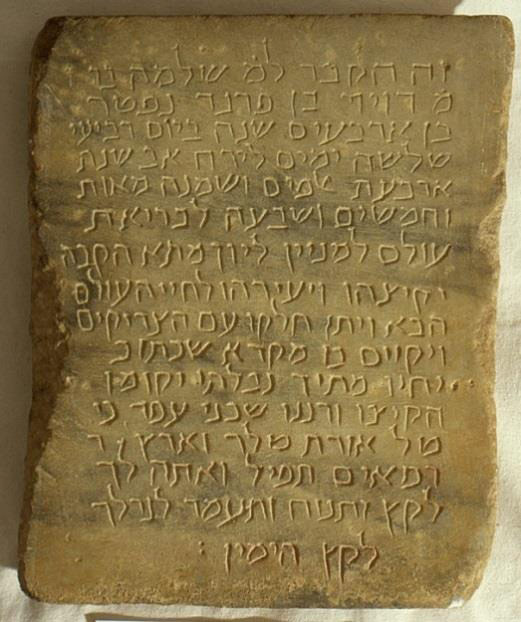 זה הקבר למ שולמה בר
מ דויד בן פרנד נפטר
בן ארבעים שנה ביום רביעי
שלשה ימים לירח אב שנת
ארבעת אלפים ושמנה מאות
וחמשים ושבעה לבריאת
עולם למנין ליון מתא הקבה
יקיצהו ויעירהו לחיי העולם
הבא ויתן חלקו עם הצדיקים
ויקויים בו מקרא שכתוב
יחיו מתיך נבלתי יקומון
הקיצו ורננו שכני עפר כי
טל אורת טלך וארץ
רפאים תפיל ואתה לך
לקץ ותנוח ותעמד לגרלך
לקץ הימין :